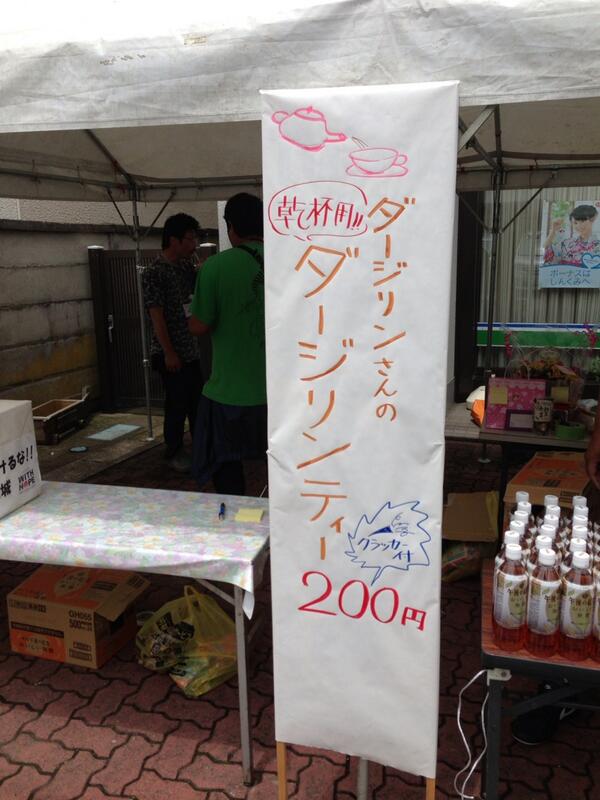 ダージリンさんの
乾杯用!!
ダージリンティー
クラッカー付
200円
ボーナスは
しんくみへ
けるな!!
城
WITH
HOPE
GH055
500
午後の